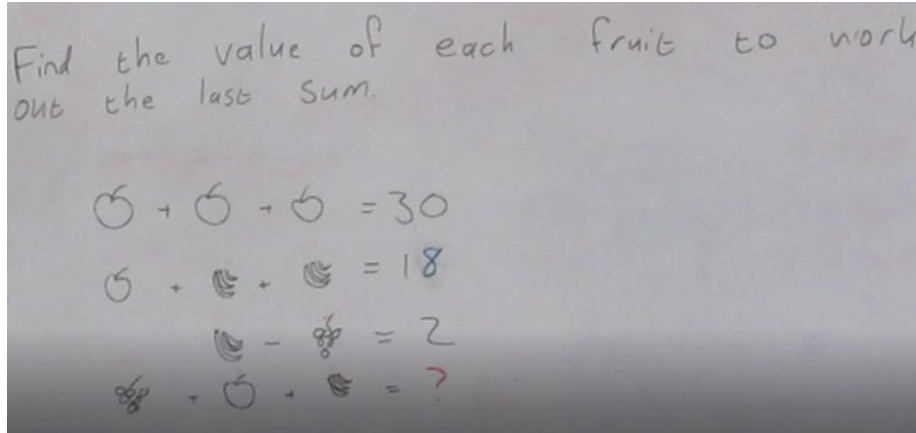 Find the value of each fruit to work
out the last sum.
+ + = 30
+ + = 18
- = 2
+ + = ?